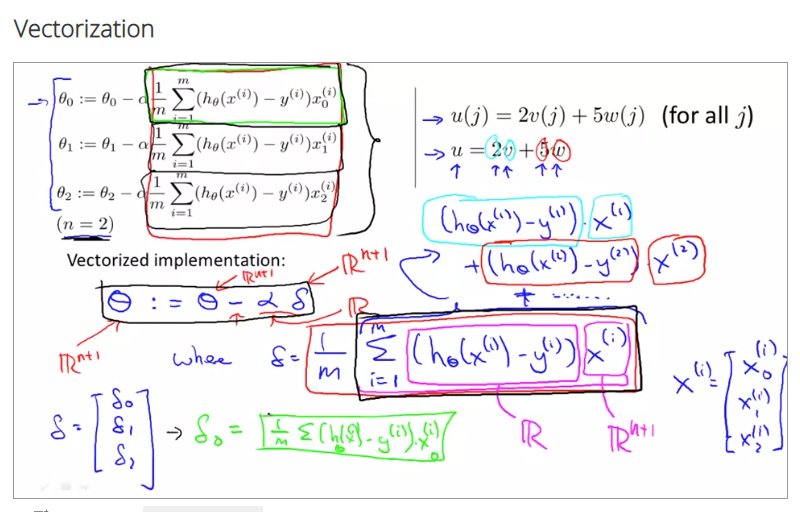 Vectorization
θ₀ := θ₀ − α 1/m ∑ᵢ₌₁ᵐ (h_θ(x⁽ⁱ⁾) − y⁽ⁱ⁾)x₀⁽ⁱ⁾
θ₁ := θ₁ − α 1/m ∑ᵢ₌₁ᵐ (h_θ(x⁽ⁱ⁾) − y⁽ⁱ⁾)x₁⁽ⁱ⁾
θ₂ := θ₂ − α 1/m ∑ᵢ₌₁ᵐ (h_θ(x⁽ⁱ⁾) − y⁽ⁱ⁾)x₂⁽ⁱ⁾
(n = 2)
→ u(j) = 2v(j) + 5w(j) (for all j)
→ u = 2v + 5w
↑ ↑↑ ↑↑
(h_θ(x⁽¹⁾) − y⁽¹⁾) · x⁽¹⁾
+ (h_θ(x⁽²⁾) − y⁽²⁾) x⁽²⁾
+ ......
Vectorized implementation:
ℝⁿ⁺¹ ℝⁿ⁺¹
θ := θ − α δ
ℝⁿ⁺¹ ℝ
where δ = 1/m ∑ᵢ₌₁ᵐ (h_θ(x⁽ⁱ⁾) − y⁽ⁱ⁾) x⁽ⁱ⁾
ℝ ℝⁿ⁺¹
x⁽ⁱ⁾ = [x₀⁽ⁱ⁾ x₁⁽ⁱ⁾ x₂⁽ⁱ⁾]
δ = [δ₀ δ₁ δ₂] → δ₀ = 1/m Σ (h_θ(x⁽ⁱ⁾) − y⁽ⁱ⁾) · x₀⁽ⁱ⁾